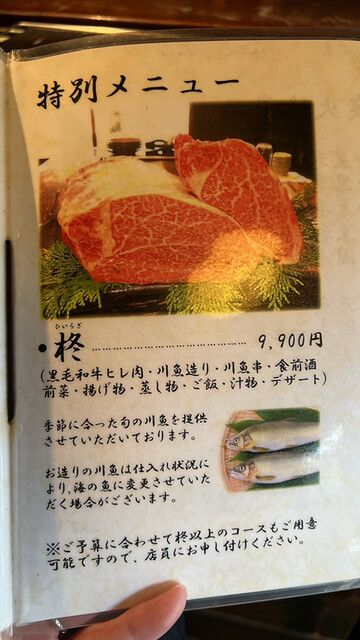 特別メニュー
ひいらぎ
・柊 ……………………………… 9,900円
(黒毛和牛ヒレ肉・川魚造り・川魚串・食前酒
前菜・揚げ物・蒸し物・ご飯・汁物・デザート)
季節に合った旬の川魚を提供
させていただいております。
お造りの川魚は仕入れ状況に
より、海の魚に変更させていた
だく場合がございます。
※ご予算に合わせて柊以上のコースもご用意
可能ですので、店員にお申し付けください。